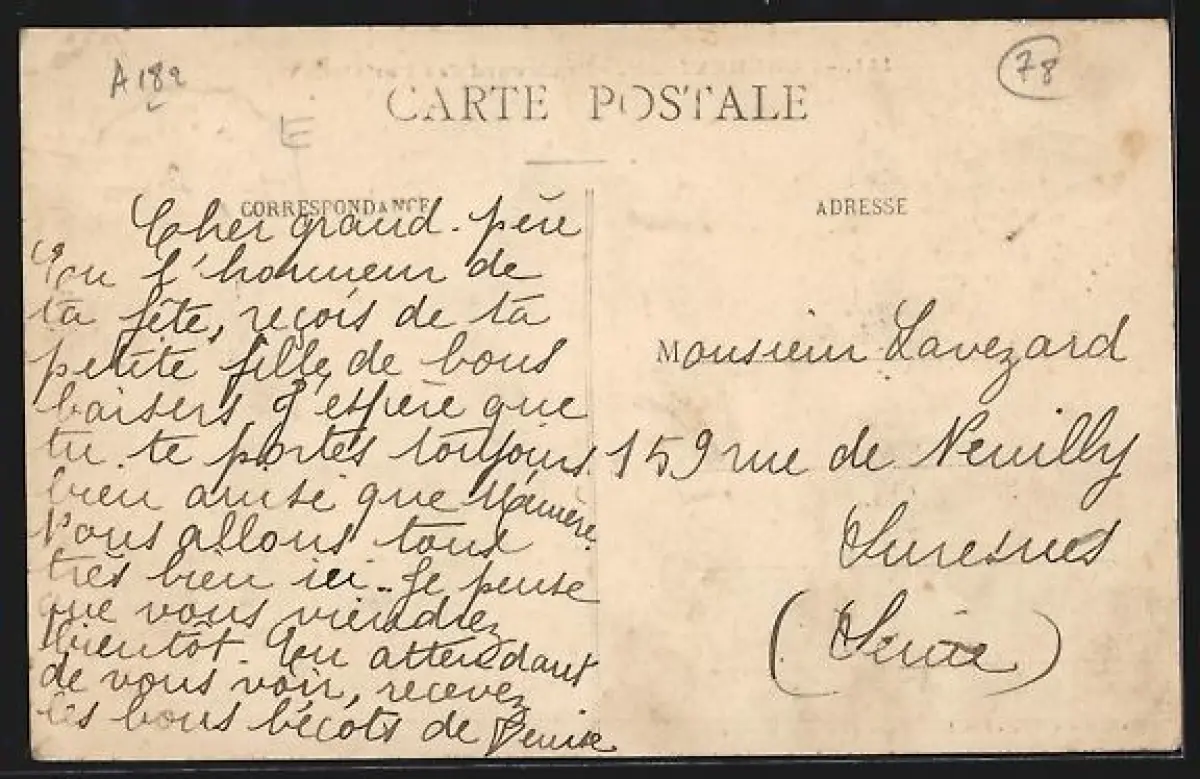 A 182
78
E
CARTE POSTALE
CORRESPONDANCE
ADRESSE
Cher grand-père
En l'honneur de
ta fête, reçois de ta
petite fille, de bons
baisers, J'espère que
tu te portes toujours
bien ainsi que Mémère.
Nous allons tous
très bien ici. Je pense
que vous viendrez
bientôt. En attendant
de vous voir, recevez
les bons bécots de Denise
Monsieur Lavezard
159 rue de Neuilly
Suresnes
(Seine)